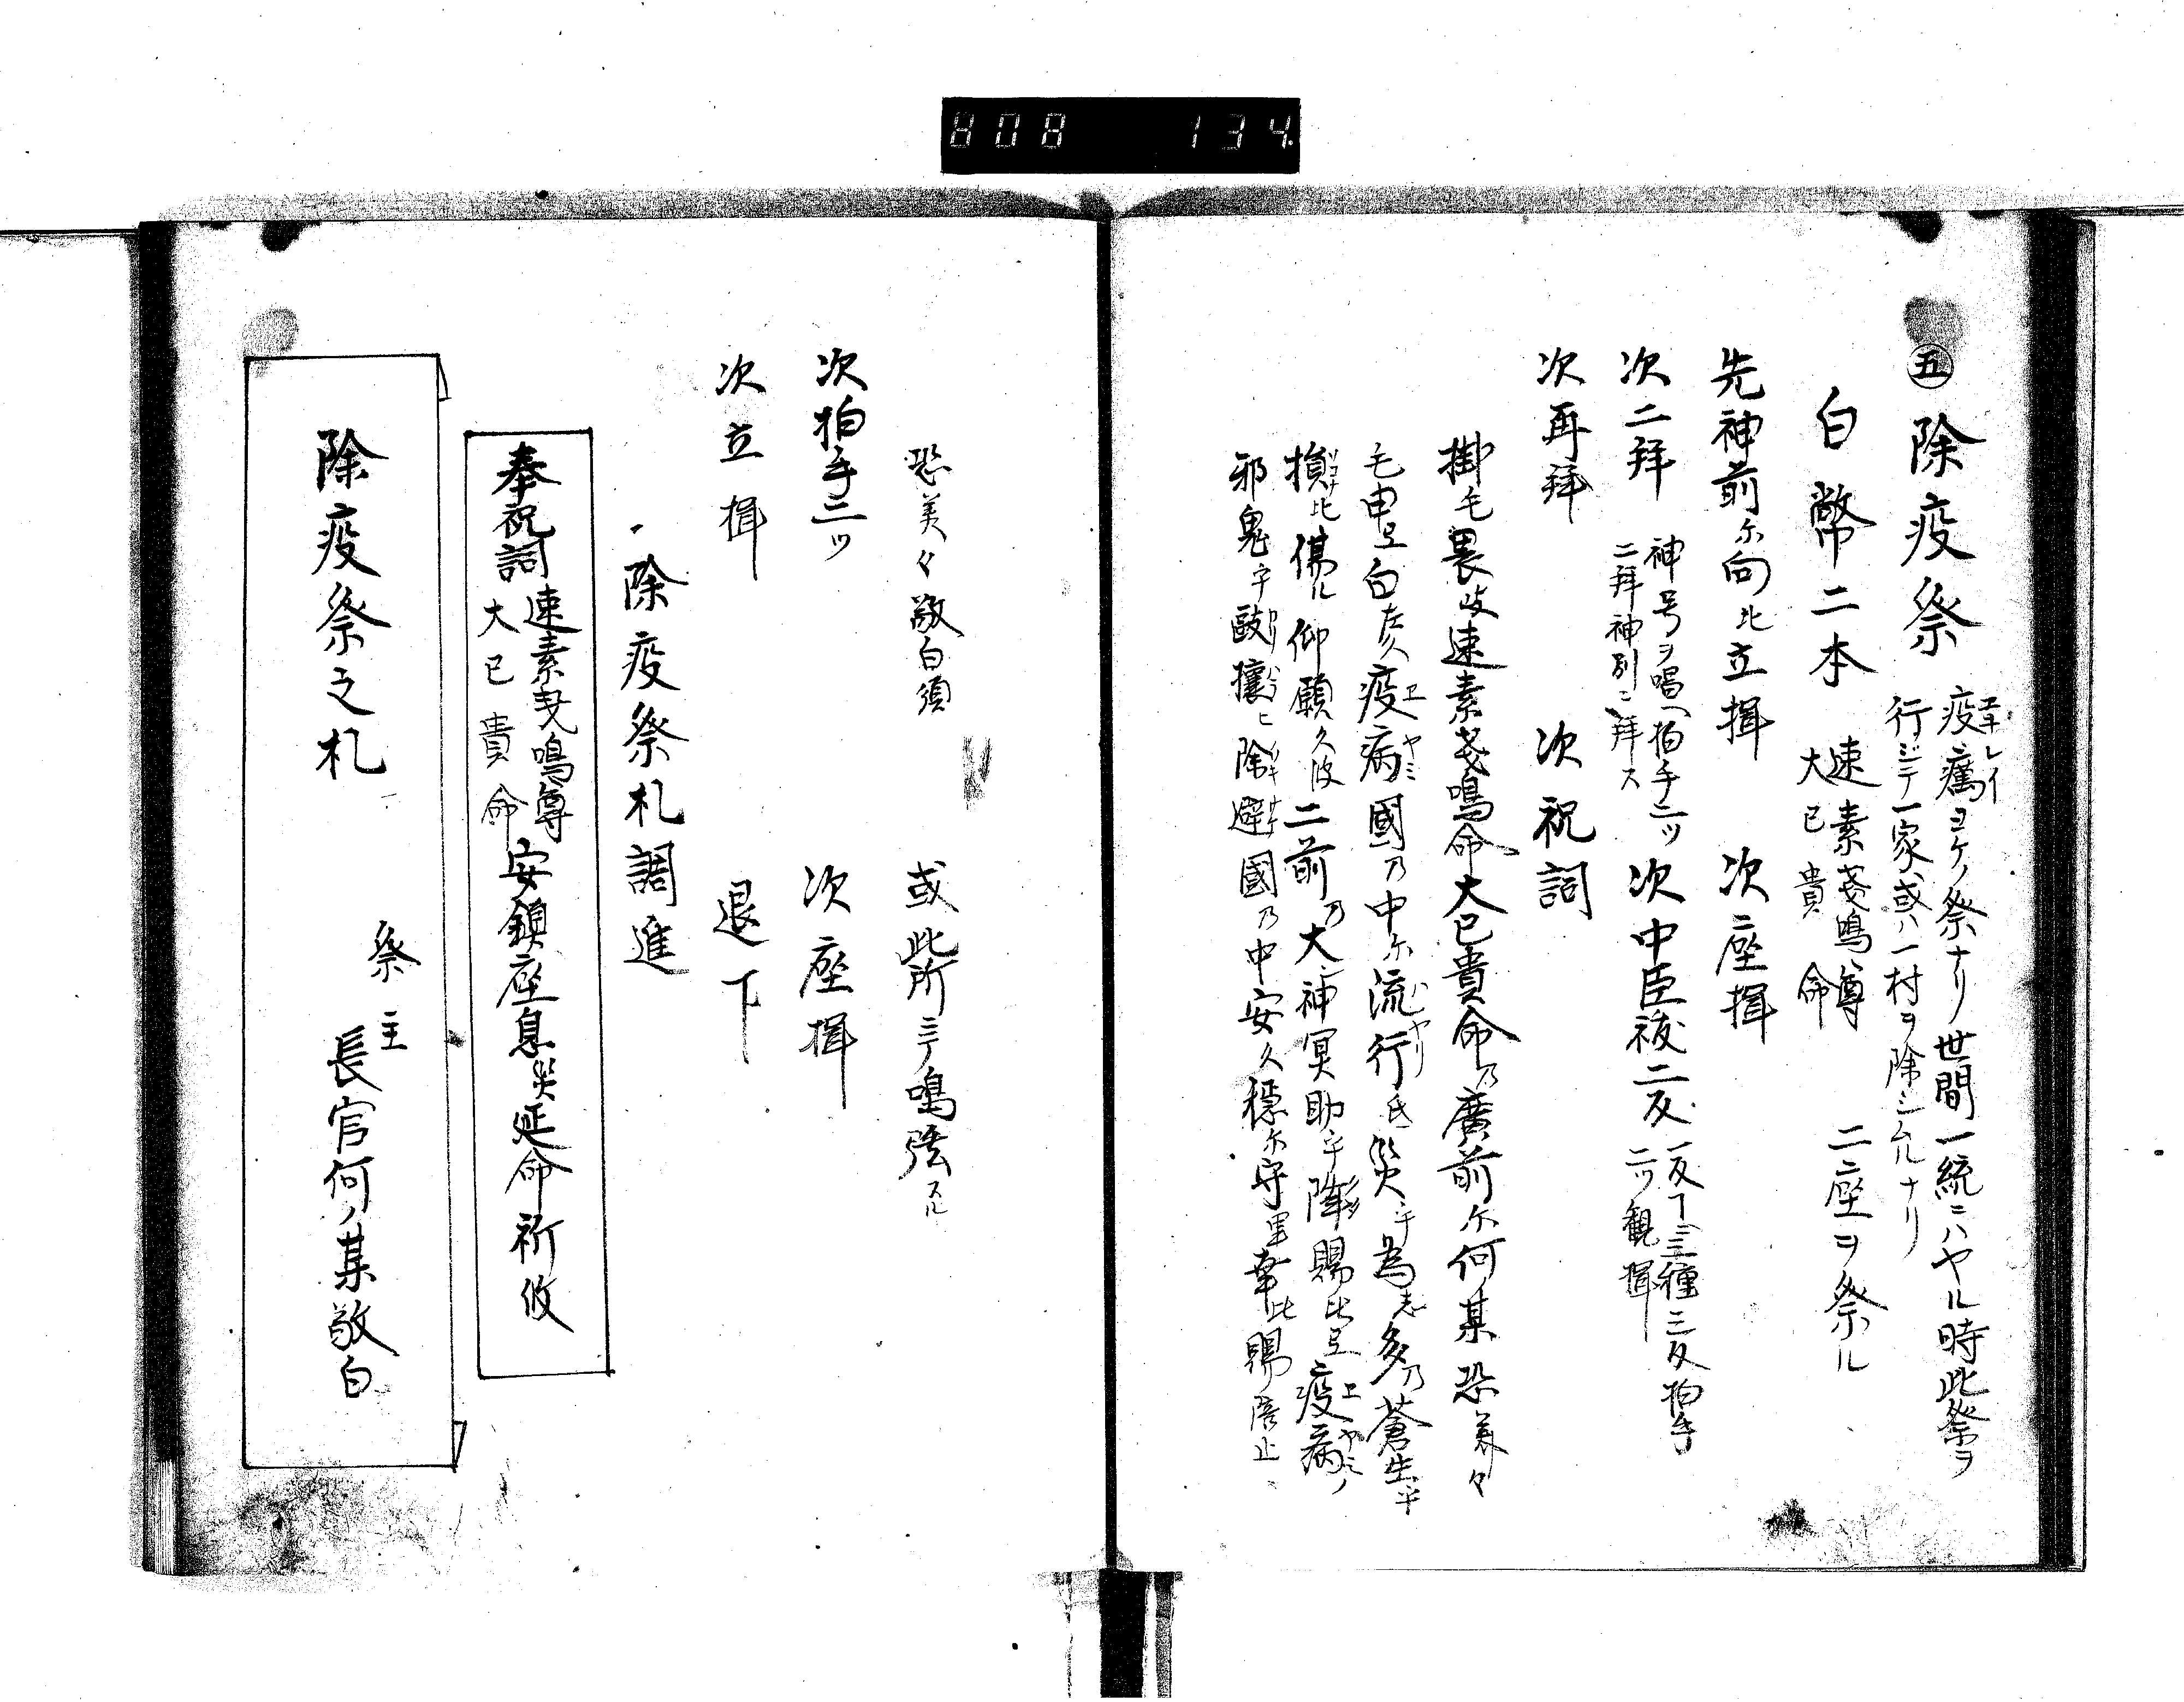 808 134.
㊄除疫祭
疫癘ヨケノ祭ナリ世間一統ニハヤル時此祭ヲ
エキレイ
行ジテ一家或ハ一村ヲ除シムルナリ
白幣二本
速素戔鳴尊
大已貴命
二座ヲ祭ル
先神前尓向比立揖 次座揖
次二拜
神号ヲ唱ヘ拍手二ツ
二拜神別ニ拜ス
次中臣祓二反
一反丁ニ三種三反拍手
二ツ観揖
次再拜 次祝詞
掛毛畏岐速素戔鳴命大已貴命乃廣前尓何某恐美々
毛申呈白左久疫病國乃中尓流行氐災乎為志多乃蒼生乎
ヤミ
損比傷ル仰願久波二前乃大神冥助乎降賜比呈疫病ノ
邪鬼乎毆攘ヒ除避國乃中安久穩尓守里幸比賜倍止
恐美々敬白須 或此所ニテ鳴弦スル
次拍手二ツ 次座揖
次立揖 退下
除疫祭札調進
奉祝詞
速素戔鳴尊
大已貴命
安鎮座息災延命祈攸
除疫祭之札
祭主
長官何ノ某敬白